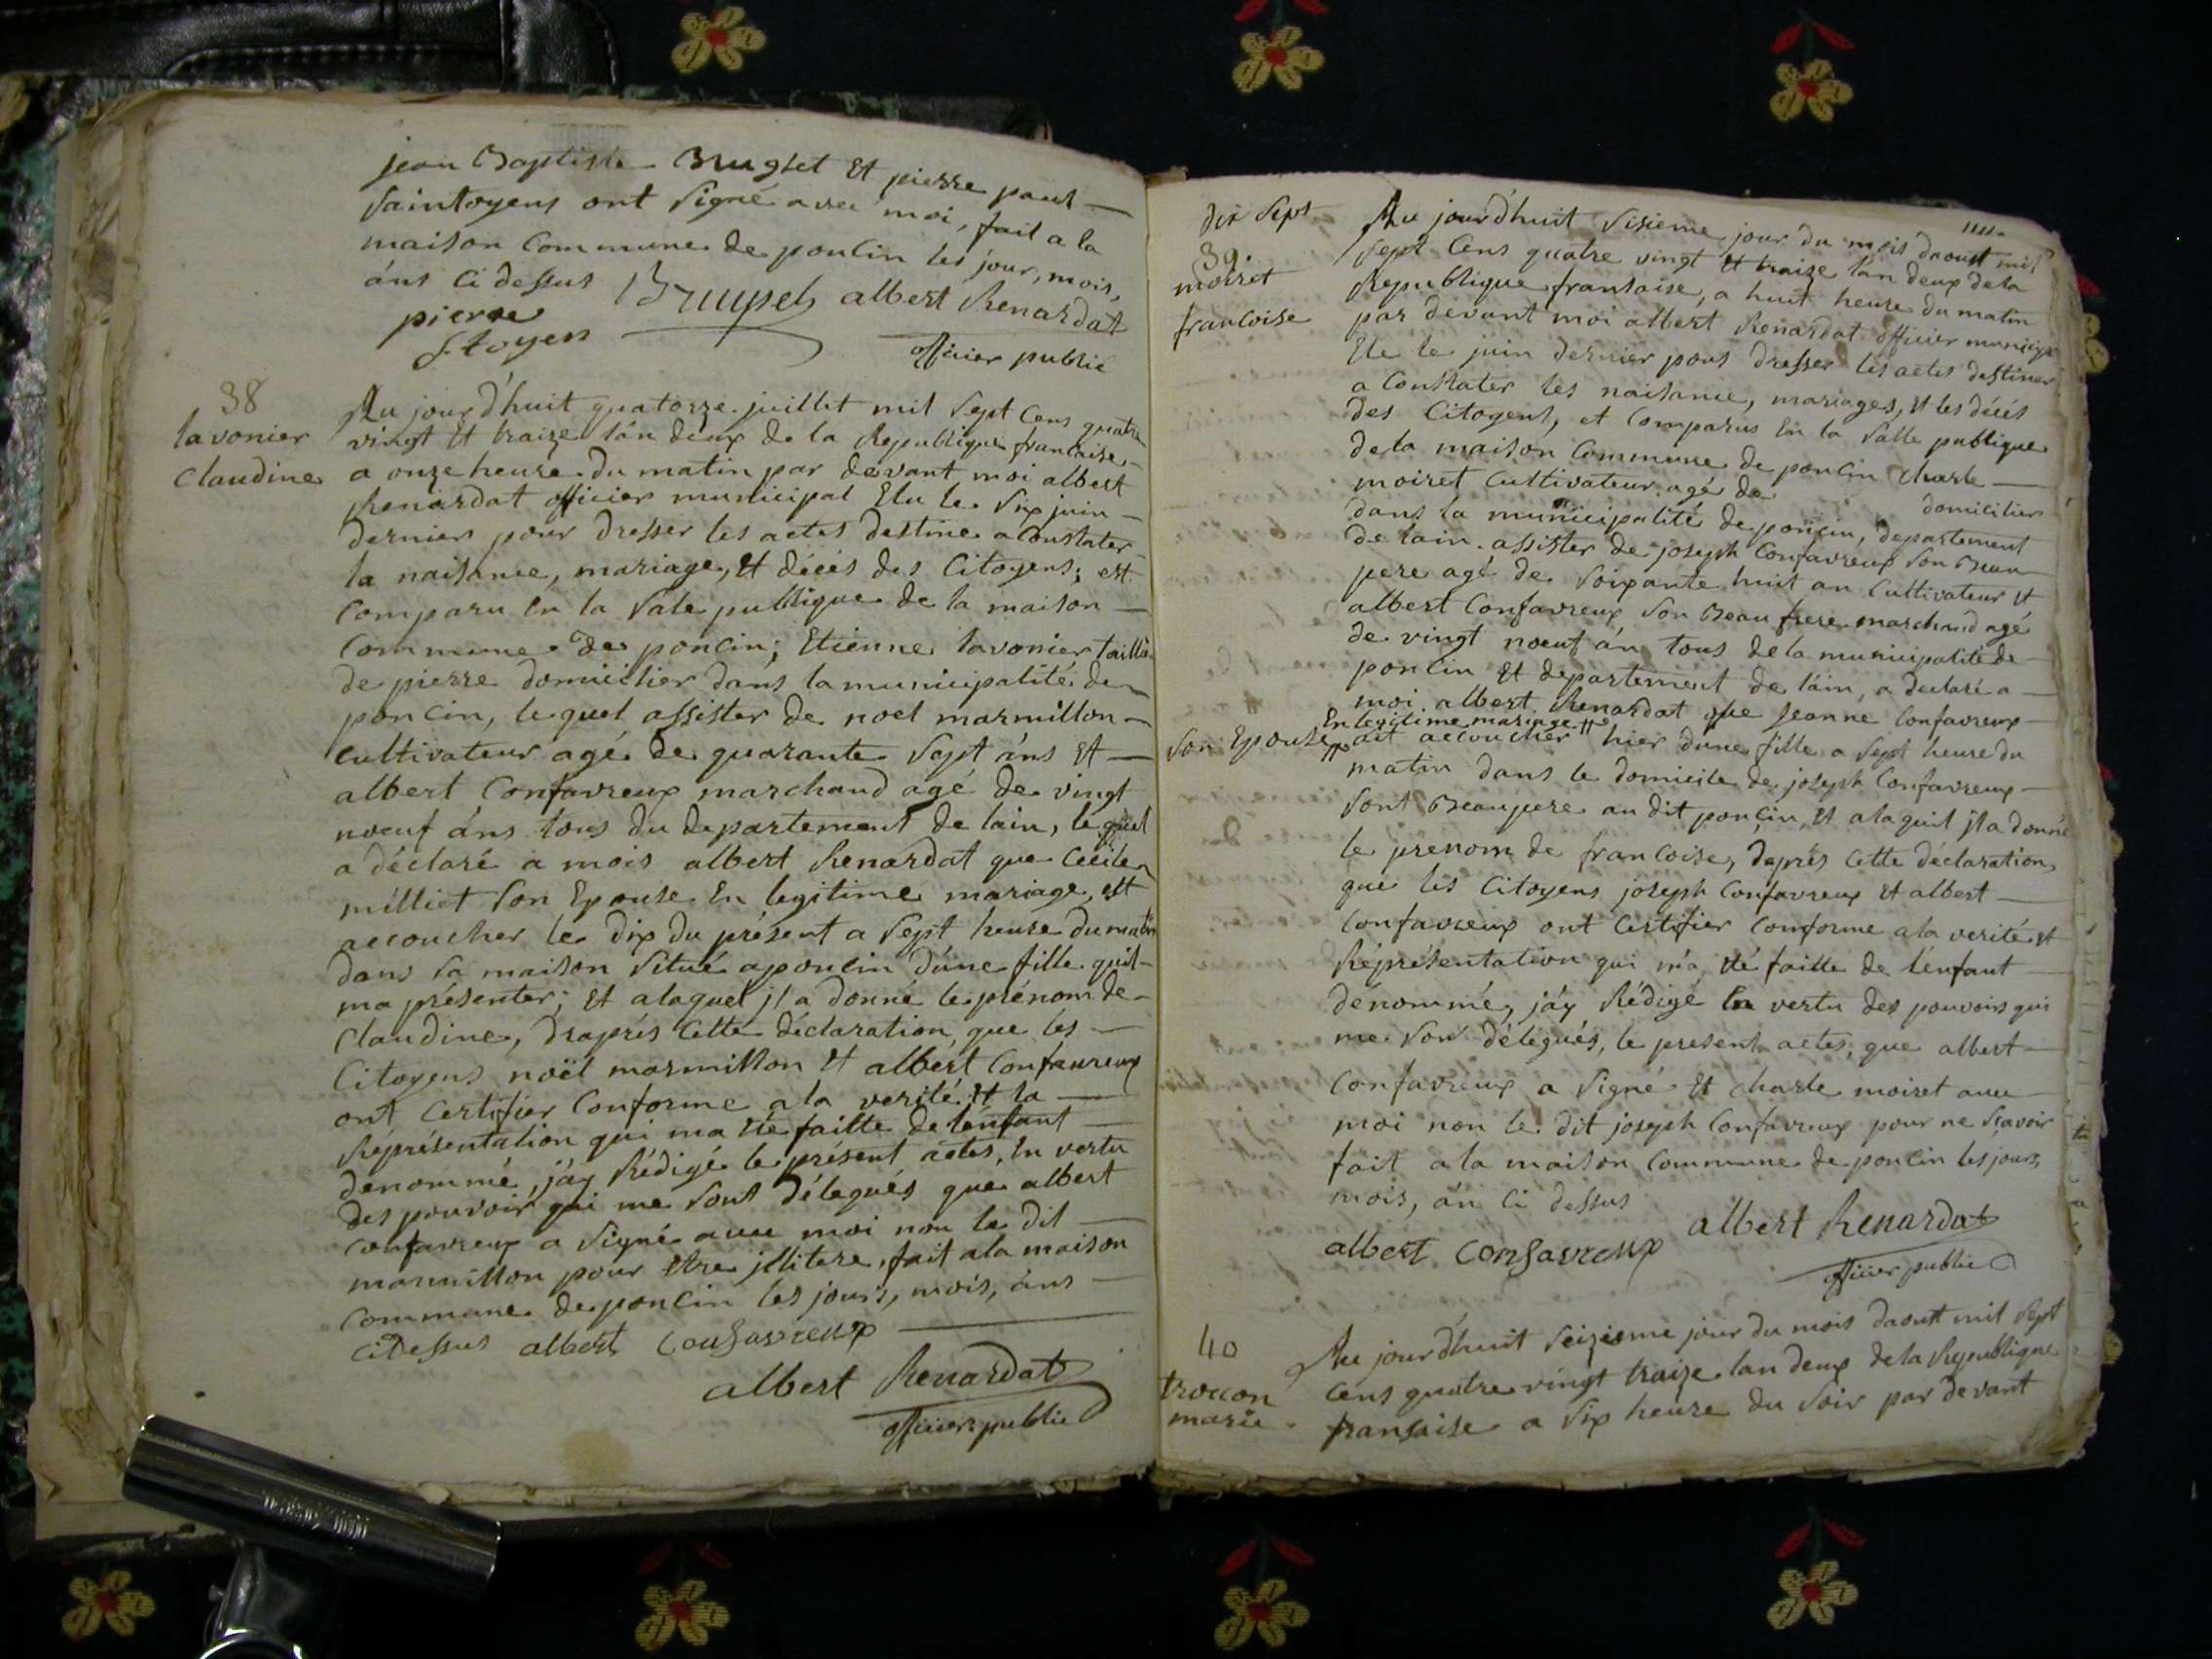 jean Baptiste Brugset Et pierre paul
Saintoyens ont Signé avec moi, fait a la
maison Commune de poncin les jour, mois,
áns Ci dessus Bruysel albert Renardat
pierre
S. toyen
officier public
38
lavonier
Claudine
Au jourd'huit quatorze juillet mil Sept Cens quatre
vingt Et traize lán deux de la Republique francaise
a onze heure du matin par devant moi albert
Renardat officier municipal Elu le Six juin
dernier pour dresser les actes destine a Constater
la naisance, mariage, Et décés des Citoyens; est
Comparu En la Sale publique de la maison
Commune de poncin; Etienne lavonier taille
de pierre domicilier dans la municipalité de
poncin, lequel assister de noel marmillon
cultivateur agé de quarante Sept áns Et
albert Confavreux marchand agé de vingt
nœuf áns tous du departement de lain, lequel
a déclaré a mois albert Renardat que Cécile
milliet Son Epouse En legitime mariage, est
accoucher le dix du présent a Sept heure du matin
dans Sa maison Situé a poncin dúne fille quil
ma présenter; Et alaquel jl a donné le prénom de
Claudine, draprés Cette déclaration que les
Citoyens noël marmillon Et albert Confavreux
ont Certifier Conforme a la verité Et la
Réprésentation qui ma Eté faitte de lénfant
denommé, jáy Rédigé le présent actes, En vertu
des pouvoir qui me Sont délegués que albert
Confavreux a Signé avec moi non le dit
marmillon pour Etre jllitere, fait a la maison
Commune de poncin les jours, mois, áns
ci dessus albert Confavreux
albert Renardat
officier public
dix Sept
39.
moiret
francoise
Au jourd'huit Sisieme jour du mois daoust mil
Sept Cens quatre vingt Et traize lán deux de la
Republique fransaise, a huit heure du matin
par devant moi albert Renardat officier municip
Ele le juin dernier pour dresser les actes destiner
a Constater les naisance, mariages, Et les décés
des Citoyens, et Comparus En la Salle publique
de la maison Commune de poncin Charle
moiret Cultivateur agé de domicilier
dans la municipalité de poncin, departement
de lain. assister de joseph Confavreux Son Beau
pere agé de Soixante huit an Cultivateur Et
albert Confavreux Son Beau frere marchand agé
de vingt nœuf án tous de la municipalité de
poncin Et departement de láin, a declaré a
moi albert Renardat que Jeanne Confavreux
En legitime mariage
Son Epouse ait accoucher hier dune fille a Sept heure du
matin dans le domicile de joseph Confavreux
Sont Beaupere au dit poncin, Et a laquil jl a donné
le prenom de francoise, daprés Cette déclaration
que les Citoyens joseph Confavreux Et albert
Confavreux ont Certifier Conforme a la verité Et
Réprésentation qui má Eté faitte de lénfant
dénommé, jáy Rédigé En vertu des pouvoirs qui
me Son délégués, le present actes, que albert
Confavreux a Signé Et charle moiret avec
moi non le dit joseph Confavreux pour ne Scavoir
fait a la maison Commune de poncin les jours,
mois, án Ci dessus
albert Confavreux albert Renardat
officier public
40
troccon
marie.
Au jourd'huit Seizieme jour du mois daoust mil Sept
Cens quatre vingt traize lan deux de la Republique
fransaise a Six heure du Soir par devant